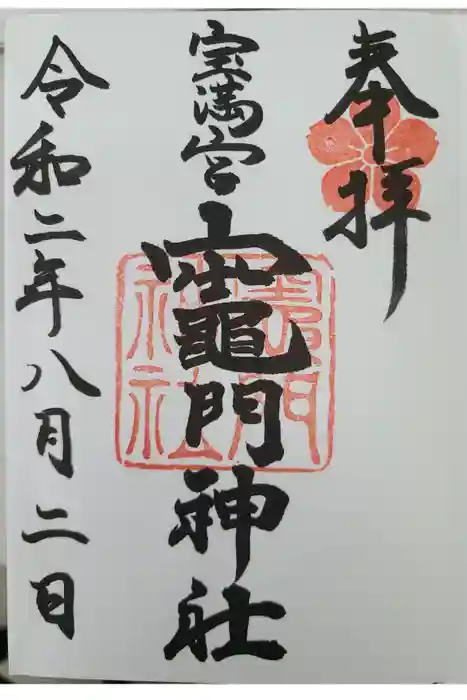 奉拝
宝満宮
竈門神社
令和二年八月二日